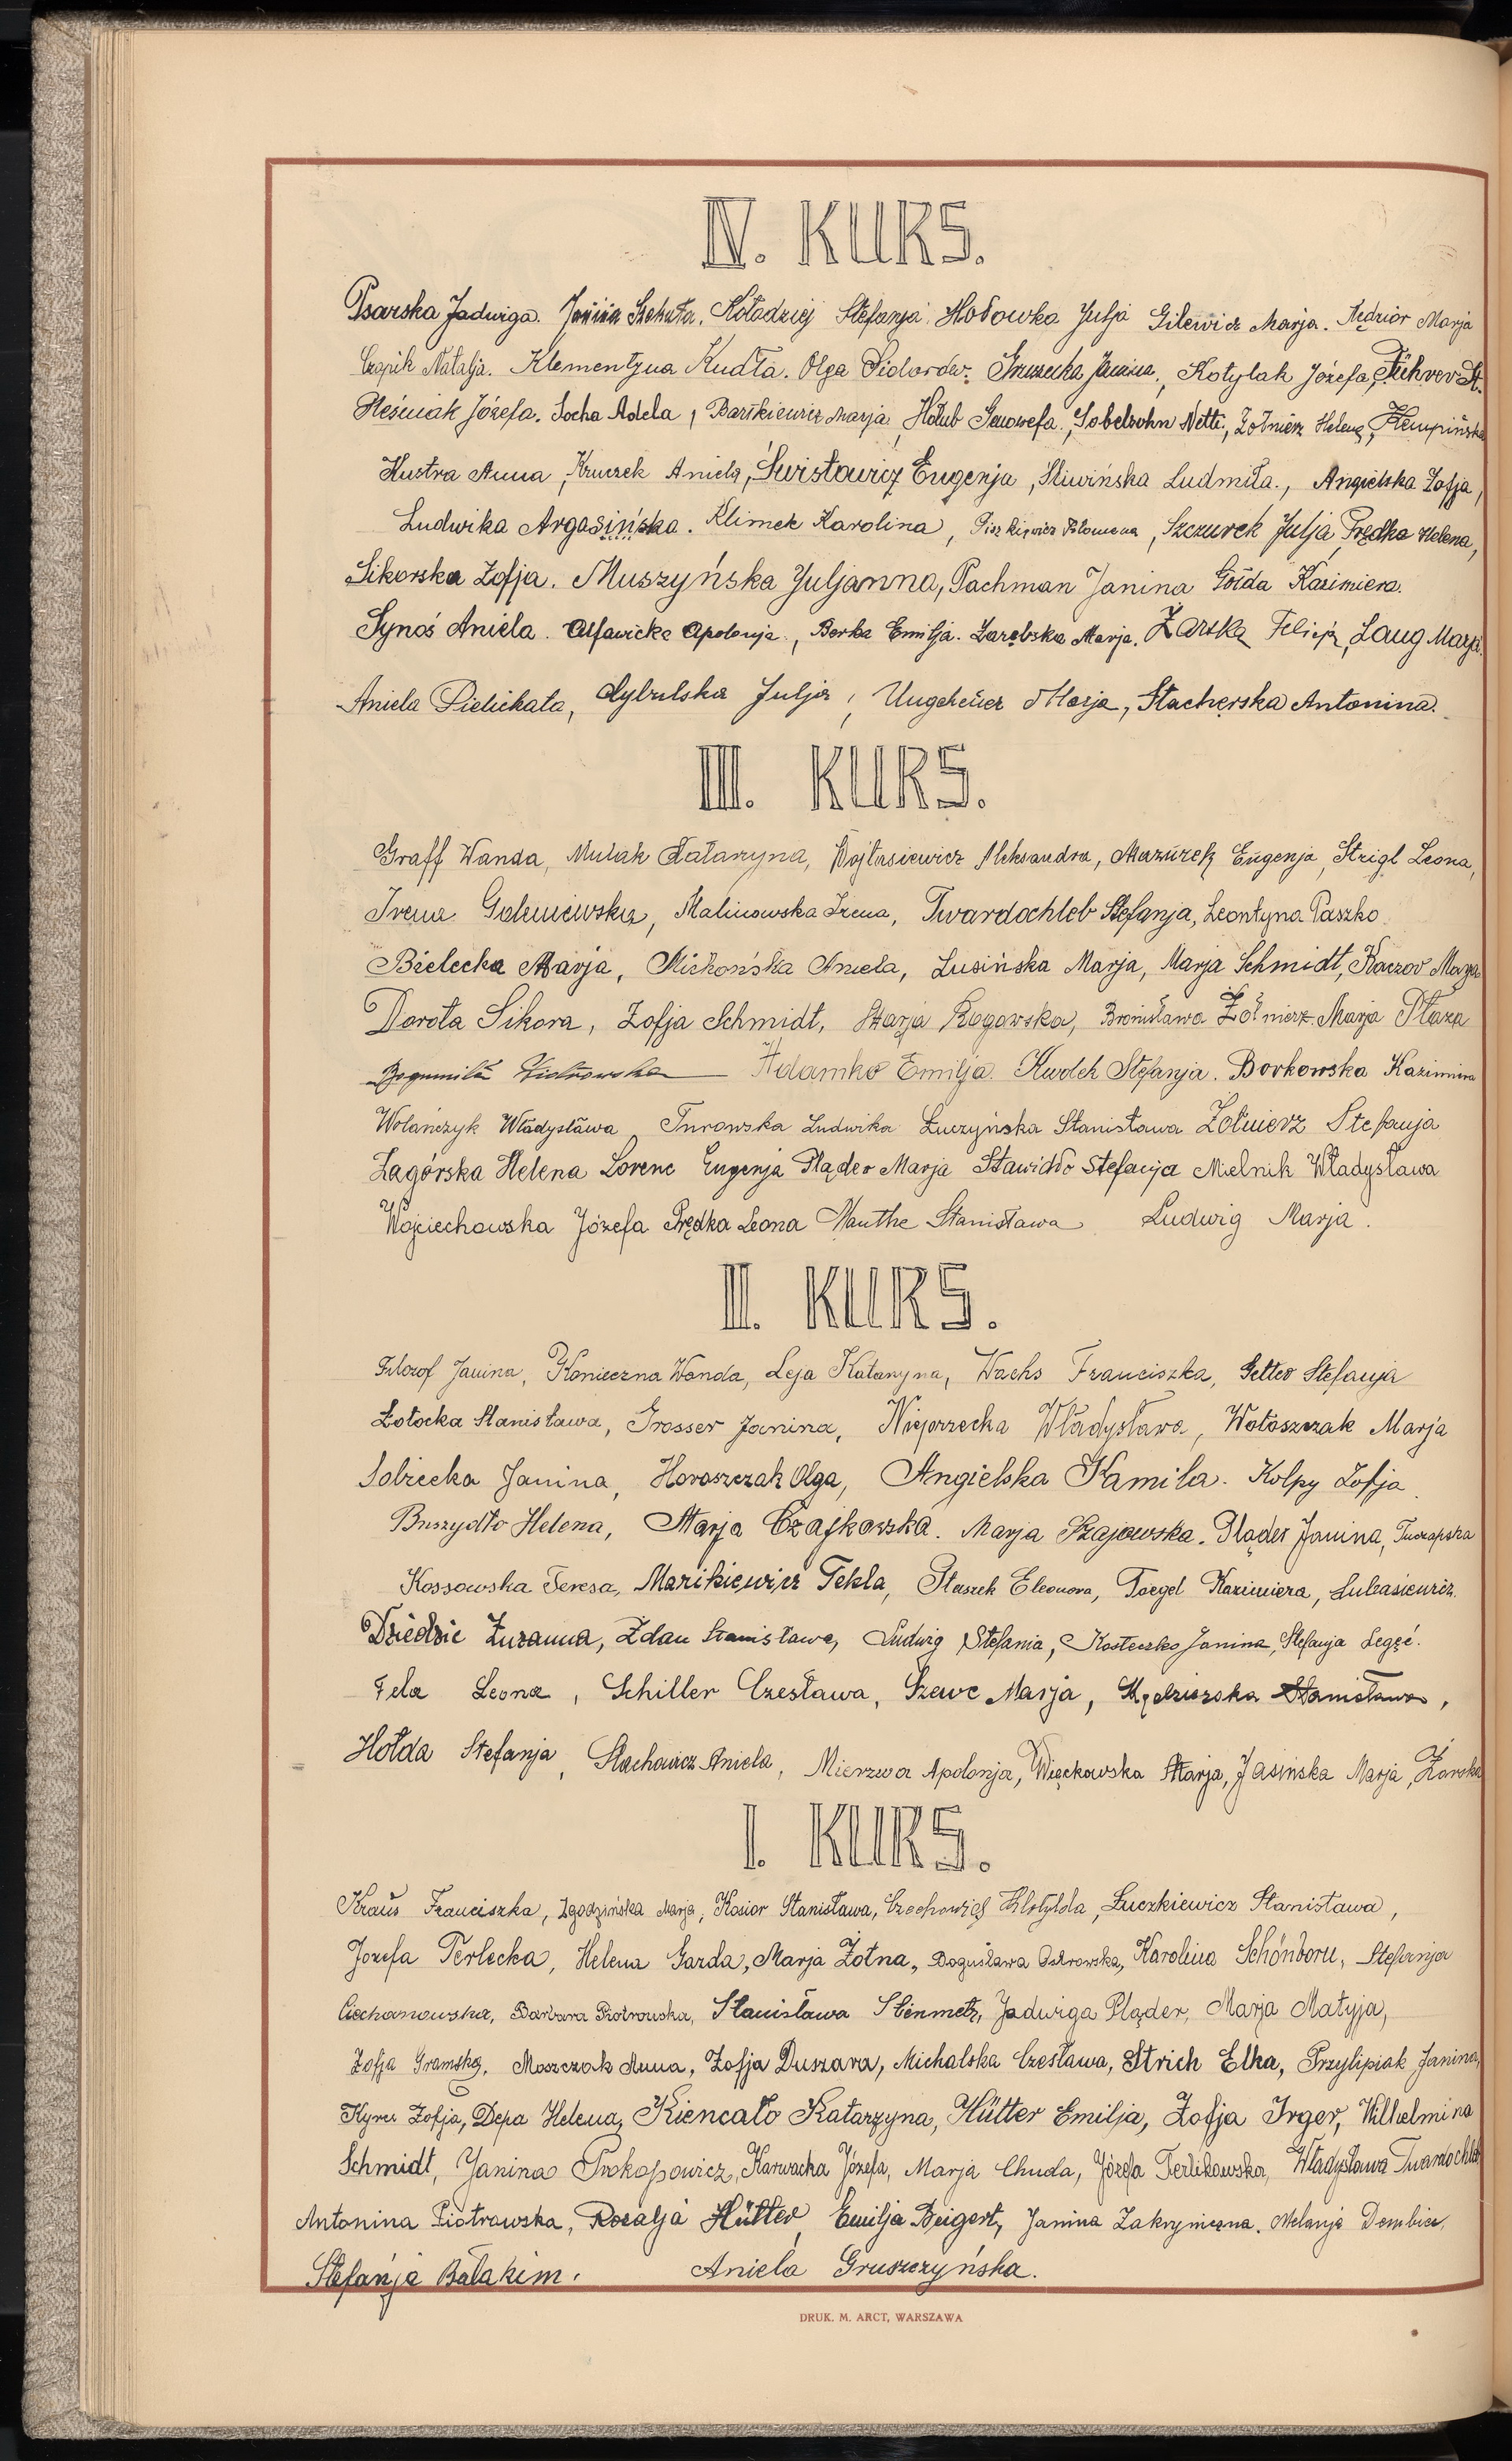 IV. KURS.
Psarska Jadwiga. Janina Szekuta. Kołodziej Stefanja Hołowka Julja Gilewicz Marja. Nędzior Marja
Czapik Natalja. Klementyna Kudła. Olga Sidorów. Gruszecka Janina, Kotylak Józefa, Führer A.
Pleśniak Józefa. Socha Adela, Bartkiewicz Marja, Hołub Genowefa, Sobelsohn Netti, Żołnierz Helena, Klempińska
Kustra Anna, Kruczek Aniela, Świstowicz Eugenja, Śliwińska Ludmiła., Angielska Zofja,
Ludwika Argasińska. Klimek Karolina, Piszkiewicz Filomena, Szczurek Julja Prędka Helena,
Sikorska Zofja. Muszyńska Juljanna, Pachman Janina Gołda Kazimiera.
Synoś Aniela. Alfawicka Apolonja, Borka Emilja. Zarębska Marja. Żarska Felicja, Laug Marja.
Aniela Pielichata, Cybulska Julja, Ungeheuer Marja, Stacherska Antonina.
III. KURS.
Graff Wanda, Mulak Katarzyna, Wojtasiewicz Aleksandra, Mazurek Eugenja, Strigl Leona,
Irena Goleniewska, Malinowska Irena, Twardochleb Stefanja, Leontyna Paszko
Bielecka Marja, Michońska Aniela, Lusińska Marja, Marja Schmidt, Kaczor Marja
Dorota Sikora, Zofja Schmidt, Marja Rogowska, Bronisława Żołnierz Marja Płaza
Bogumiła Piotrowska Adamko Emilja. Kwolek Stefanja. Borkowska Kazimiera
Wolańczyk Władysława Turowska Ludwika Łuczyńska Stanisława Żołnierz Stefanja
Zagórska Helena Lorenc Eugenja Pląder Marja Stawidło Stefanja Mielnik Władysława
Wojciechowska Józefa Prędka Leona Manthe Stanisława Ludwig Marja.
II. KURS.
Filozof Janina, Konieczna Wanda, Leja Katarzyna, Wachs Franciszka, Getter Stefanja
Łotocka Stanisława, Grosser Janina, Niejorzecka Władysława, Wołoszczak Marja
Sobiecka Janina, Horoszczak Olga, Angielska Kamila. Kolpy Zofja
Buszydło Helena, Marja Czajkowska. Marja Szajowska. Pląder Janina, Tuczapska
Kossowska Teresa, Marikiewicz Tekla, Ptaszek Eleonora, Toegel Kazimiera, Łukasiewicz.
Dziedzic Zuzanna, Zdan Stanisława, Ludwig Stefania, Kosteczko Janina, Stefanja Legęć.
Fela Leona, Schiller Czesława, Szewc Marja, Mędziorska Stanisława,
Hołda Stefanja, Stachowicz Aniela, Mierzwa Apolonja, Więckowska Marja, Jasińska Marja, Żarska
I. KURS.
Kraus Franciszka, Zgodzińska Marja, Kosior Stanisława, Czechowicz Klotylda, Łuczkiewicz Stanisława,
Józefa Terlecka, Helena Garda, Marja Żołna, Bogusława Ostrowska, Karolina Schönborn, Stefanja
Ciechanowska, Barbara Piotrowska, Stanisława Steinmetz, Jadwiga Pląder, Marja Matyja,
Zofja Gramska, Moszczak Anna, Zofja Duszara, Michalska Czesława, Strich Elka, Przylipiak Janina,
Kyrcz Zofja, Depa Helena, Kiencało Katarzyna, Hütter Emilja, Zofja Irger, Wilhelmina
Schmidt, Janina Prokopowicz, Karwacka Józefa, Marja Chuda, Józefa Terlikowska, Władysława Twardochleb
Antonina Piotrowska, Rozalja Hütter, Emilja Beigert, Janina Zakryniczna, Melanja Dembicz,
Stefanja Bałakim. Aniela Gruszczyńska.
DRUK. M. ARCT, WARSZAWA